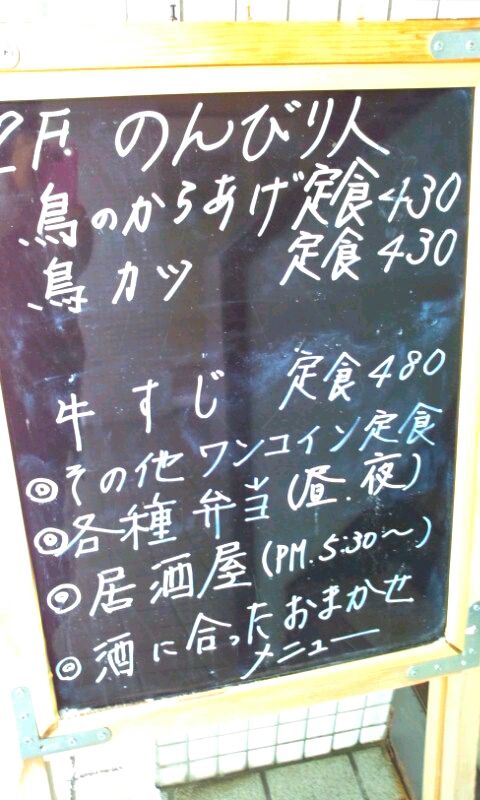 2F. のんびり人
鳥のからあげ定食430
鳥カツ 定食430
牛すじ 定食480
◎その他ワンコイン定食
◎各種弁当(昼.夜)
◎居酒屋(PM.5:30〜)
◎酒に合ったおまかせ
メニュー